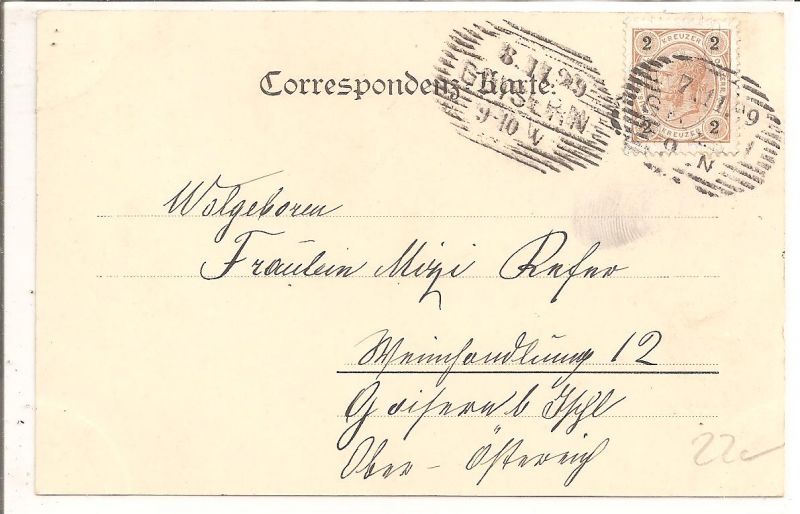 Correspondenz-Karte.
8.11.99
GOISERN
9-10 V
2 KREUZER 2
2 KREUZER 2
7.11.99
N
Wolgeboren
Fräulein Mizi Refer
Weinhandlung 12
Goisern b Ischl
Ober-Österreich
22